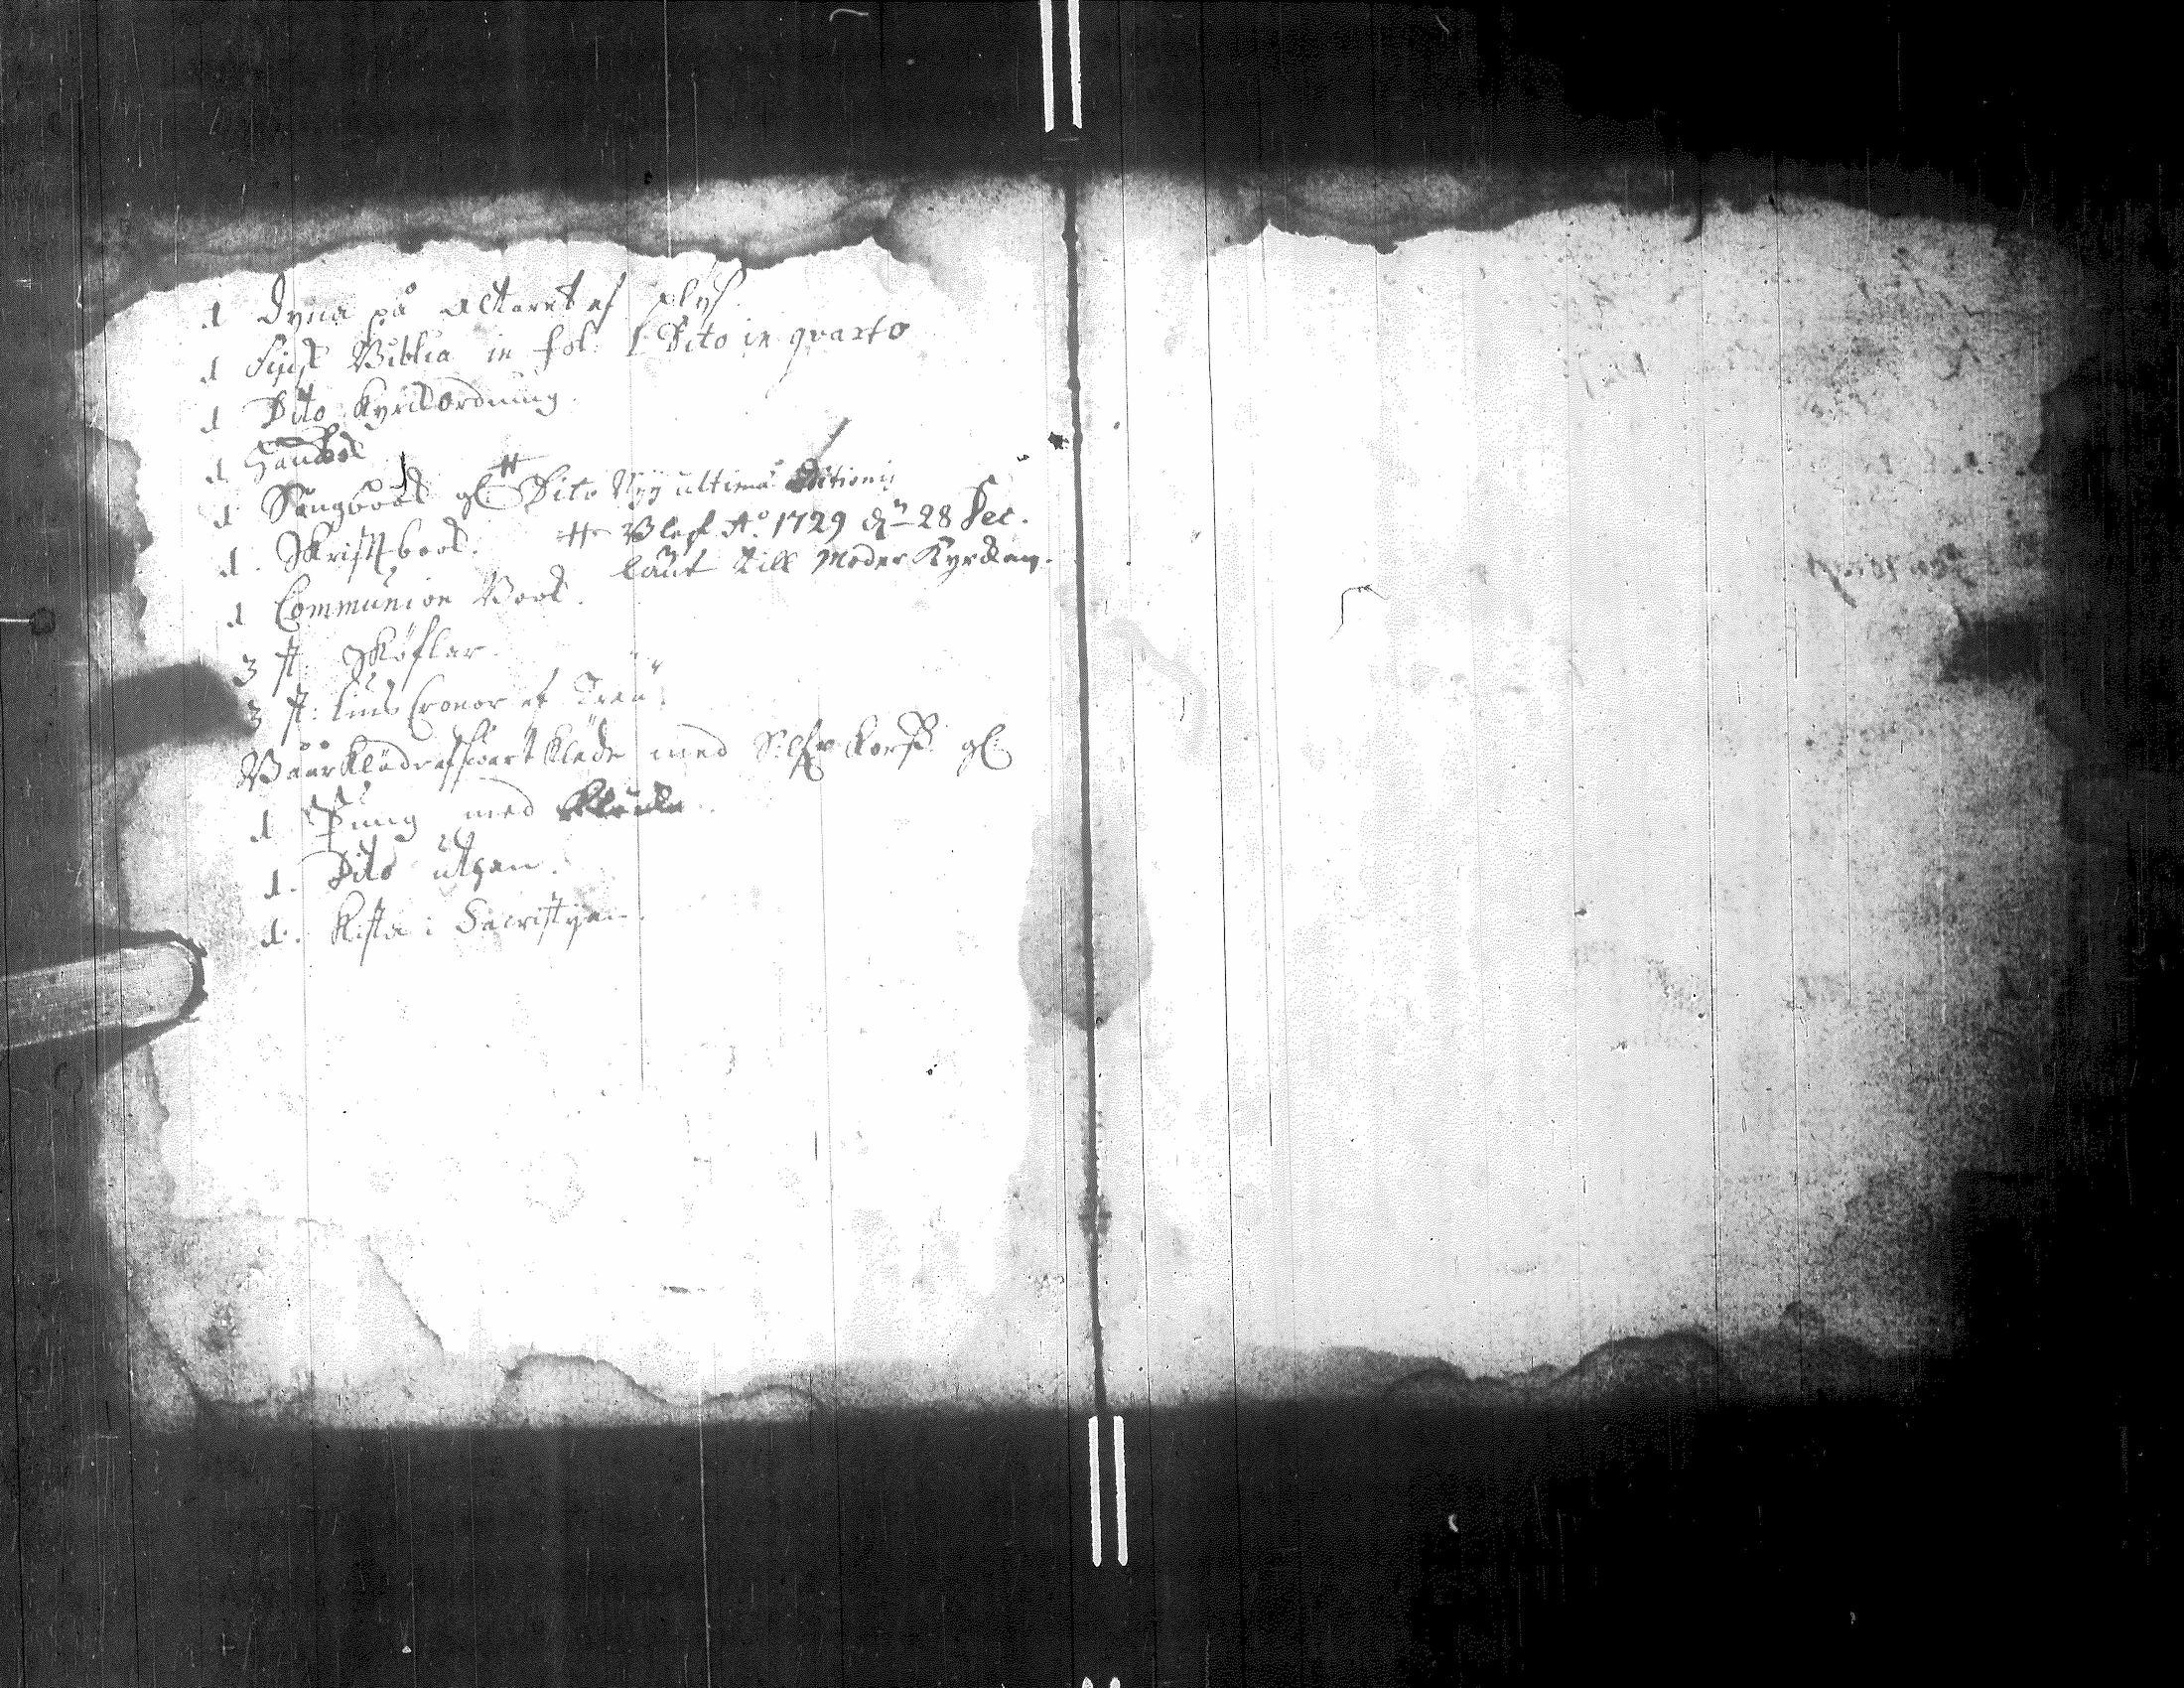 1 Dyna på Altaret af plys.
1 Finsk Biblia in fol: 1 Dito in qvarto
1 Dito Kyrckordning.
1 Handbok
1 Sångbook gl. # Dito Nyy ultimæ Editionis
1. Skrifftbook. # Blef A:o 1729 d. 28 Dec.
lånt till Moder Kyrckan.
1 Communion Book.
3 st. Skoflar.
3 st: lius Cronor af Trää.
Båår Kläde af swart kläde med Silfr Korss gl.
1. Pung med Klåcka.
1. Dito utgen.
1. Kista i Sacristyan.